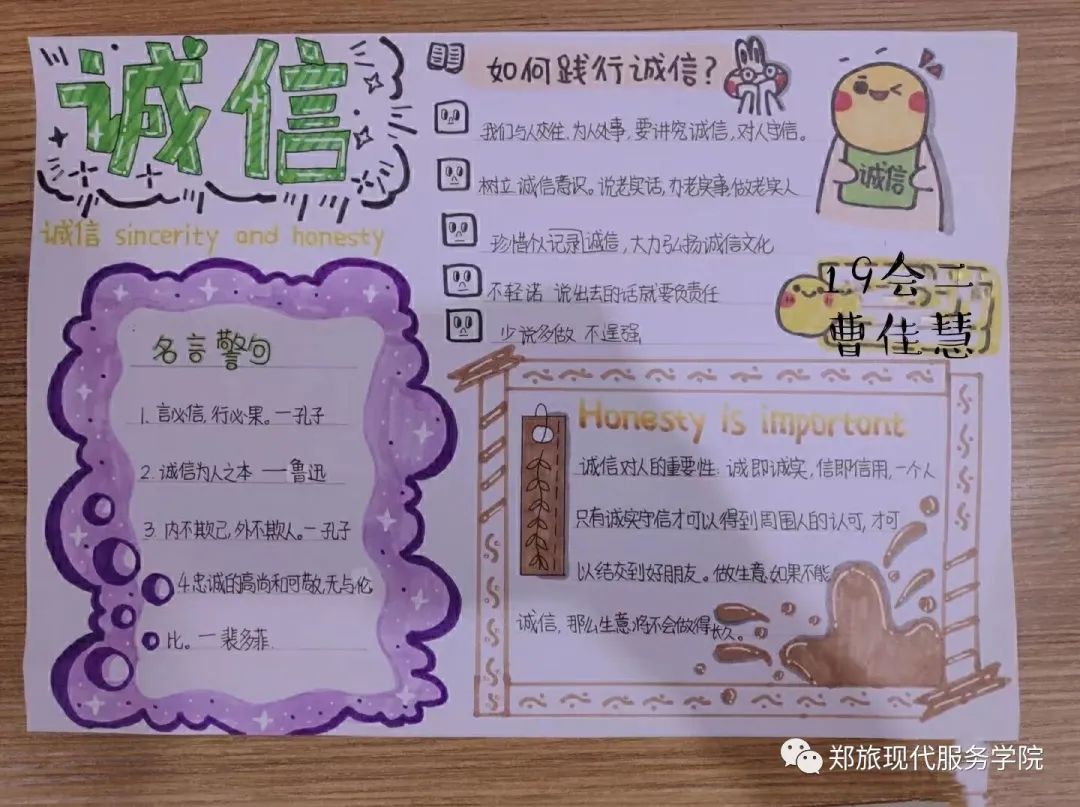 诚信
诚信 sincerity and honesty
名言警句
1. 言必信,行必果。一孔子
2. 诚信为人之本 一鲁迅
3. 内不欺己,外不欺人。一孔子
4.忠诚的高尚和可敬,无与伦
比。一裴多菲.
如何践行诚信?
我们与人交往、为人处事,要讲究诚信,对人守信。
树立诚信意识。说老实话,办老实事,做老实人
珍惜个人记录诚信,大力弘扬诚信文化
不轻诺 说出去的话就要负责任
少说多做 不逞强
诚信
19会二
曹佳慧
Honesty is important
诚信对人的重要性:诚即诚实,信即信用,一个人
只有诚实守信才可以得到周围人的认可,才可
以结交到好朋友。做生意,如果不能
诚信,那么生意将不会做得长久。
郑旅现代服务学院